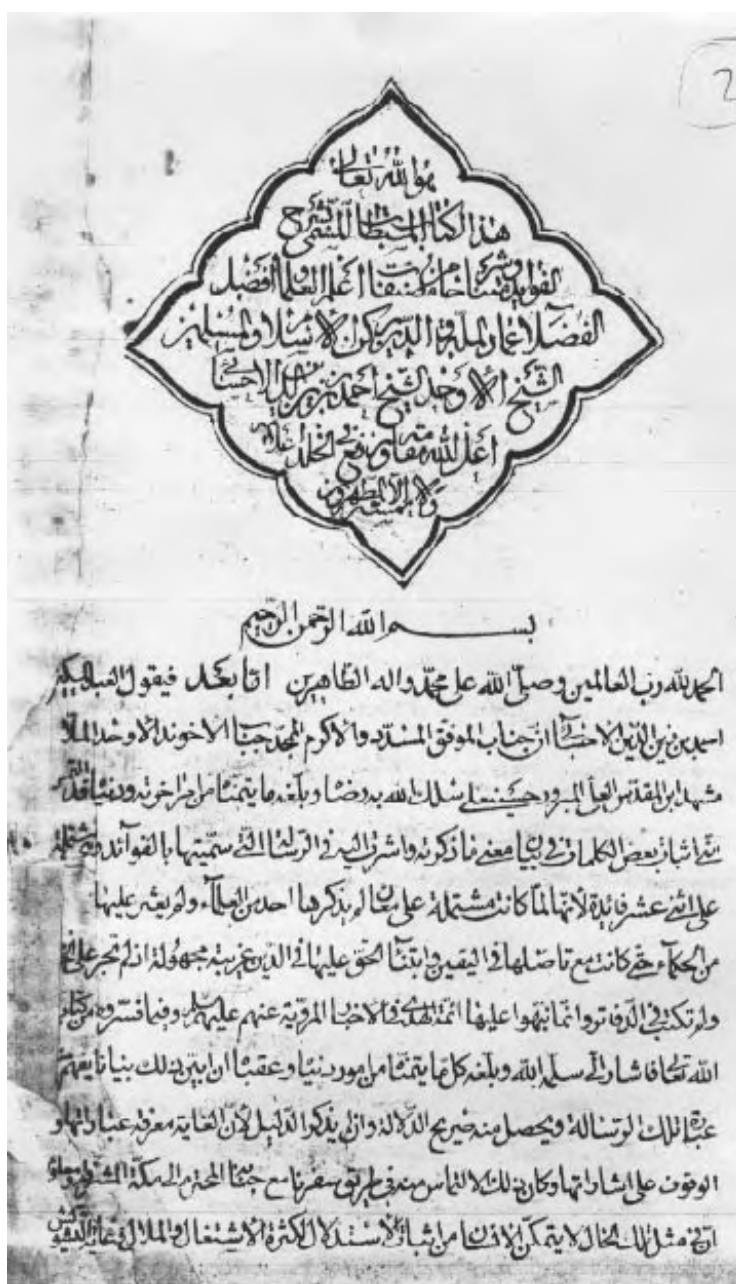 2
هو الله تعالى
هذا الكتاب المستطاب المسمى بشرح
الفوائد وشرحه من مصنفات اعلم العلماء وافضل
الفضلاء عماد الملة والدين ركن الاسلام والمسلمين
الشيخ الاوحد الشيخ احمد بن زين الدين الاحسائي
اعلى الله مقامه ورفع في الخلد اعلامه
ولا يمسه الا المطهرون
بسم الله الرحمن الرحيم
الحمد لله رب العالمين وصلى الله على محمد واله الطاهرين اما بعد فيقول العبد المسكين
احمد بن زين الدين الاحسائي ان جناب الموفق المسدد والاكرم الممجد جناب الاخوند الاوحد الملا
مشهد ابن المقدس العلي المبرور حسينعلي سلك الله به رضاه وبلغه ما يتمناه من امر اخرته ودنياه قد
اثبات بعض الكلمات في بيان معنى ما ذكرته واشرت اليه في الرسالة التي سميتها بالفوائد وهي مشتملة
على اثنى عشر فايدة لانها لما كانت مشتملة على معان لم يذكرها احد من العلماء ولم يعثر عليها
من الحكماء حتى كانت مع تاصلها في اليقين وابتناء الحق عليها في الدين غريبة مجهولة اذ لم تجر على
ولم تكتب في الدفاتر وانما نبهوا عليها ائمة الهدى في الاخبار المروية عنهم عليهم السلام وفيما فسروه من كتاب
الله تعالى فاشار الي سلمه الله وبلغه كل ما يتمناه من امور دنياه وعقباه ان ابين ذلك بيانا يفهم
عبارة تلك الرسالة ويحصل منه صريح الدلالة وان لم يذكر الدليل لان الغاية معرفة عباراتها و
الوقوف على اشاراتها وكان ذلك الالتماس منه في طريق سفرنا مع جنابه المحترم الى مكة المشرفة
ان في مثل تلك الحال لا يتمكن الانسان من اثبات الاستدلال لكثرة الاشتغال والملال